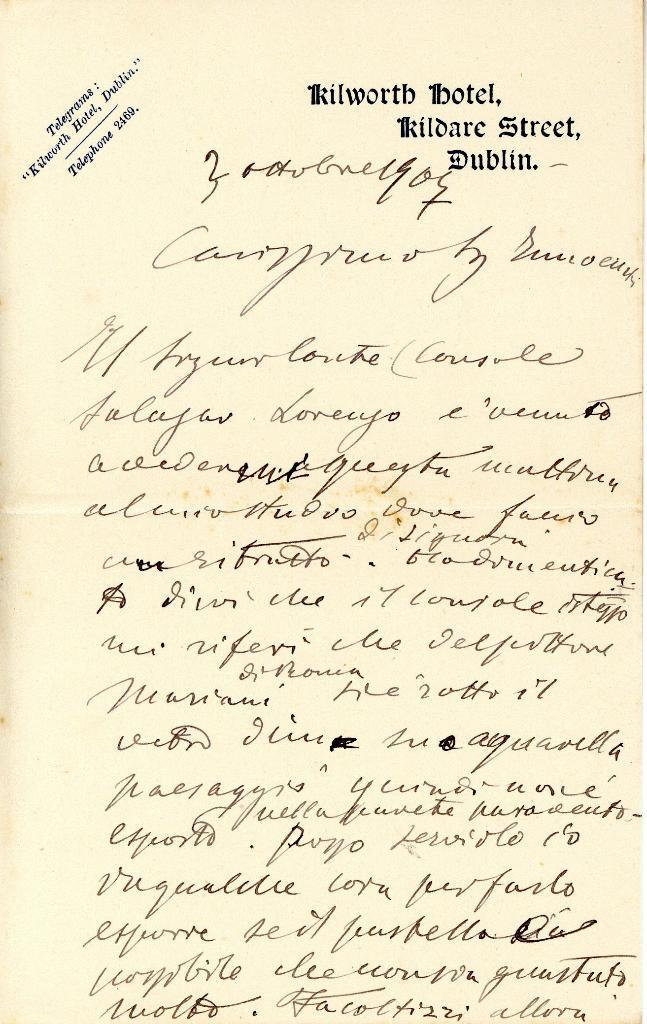 Telegrams:
"Kilworth Hotel, Dublin."
Telephone 2469.
Kilworth Hotel,
Kildare Street,
Dublin.
3 ottobre 1907
Carissimo Sg Innocenti
Il Signor Conte (Console
Salazar Lorenzo è venuto
a vedere questa mattina
al mio studio dove faccio
un ritratto di Signora. Ho dimentica-
to dirvi che il console istesso
mi riferì che del pittore
Mariani di Roma si è rotto il
vetro di suo aquarella
paesaggio quindi non è
esposto nella parete paravento.
Posso servirlo io
in qualche cosa per farlo
esporre se il pastello
possibile che non sia guastato
molto. Facoltizzi allora